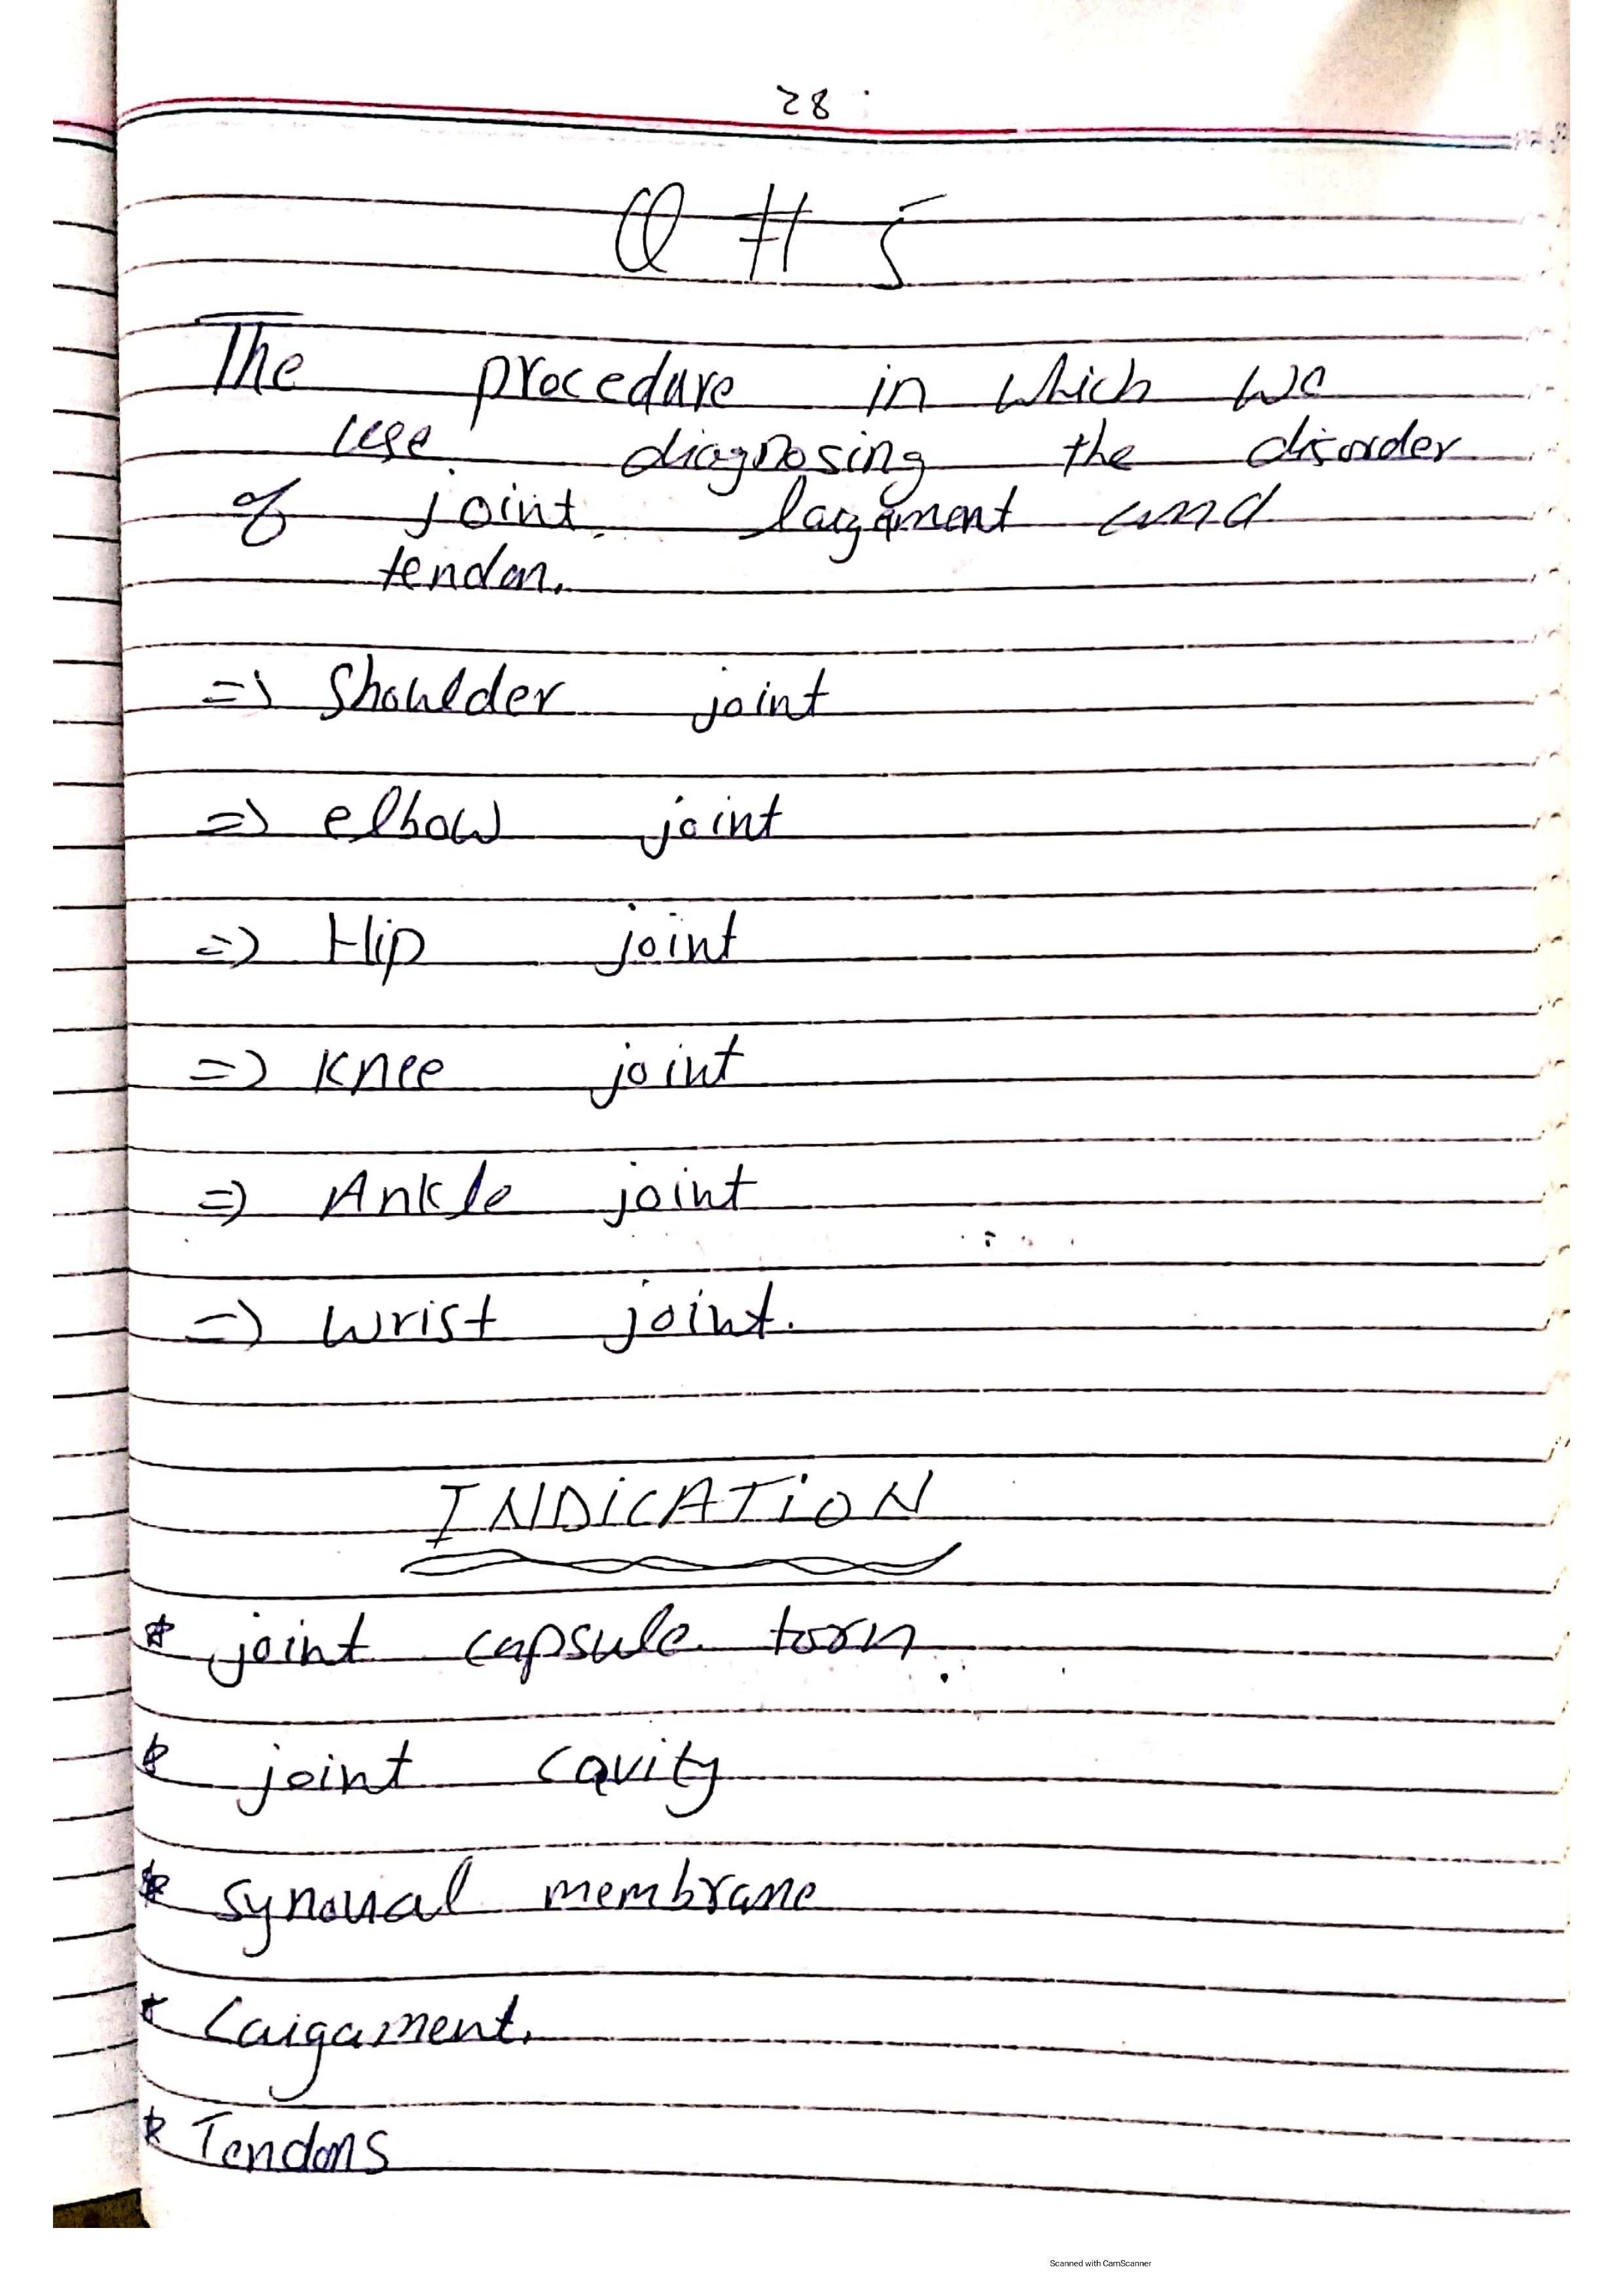 28
Q # 5
The procedure in which we
use diagnosing the disorder
of joint. laigament and
tendon.
=> Shoulder joint
=> elbow joint
=> Hip joint
=> Knee joint
=> Ankle joint
=> wrist joint.
INDICATION
* joint capsule torn.
* joint cavity
* synoval membrane
* Laigament.
* Tendons
Scanned with CamScanner